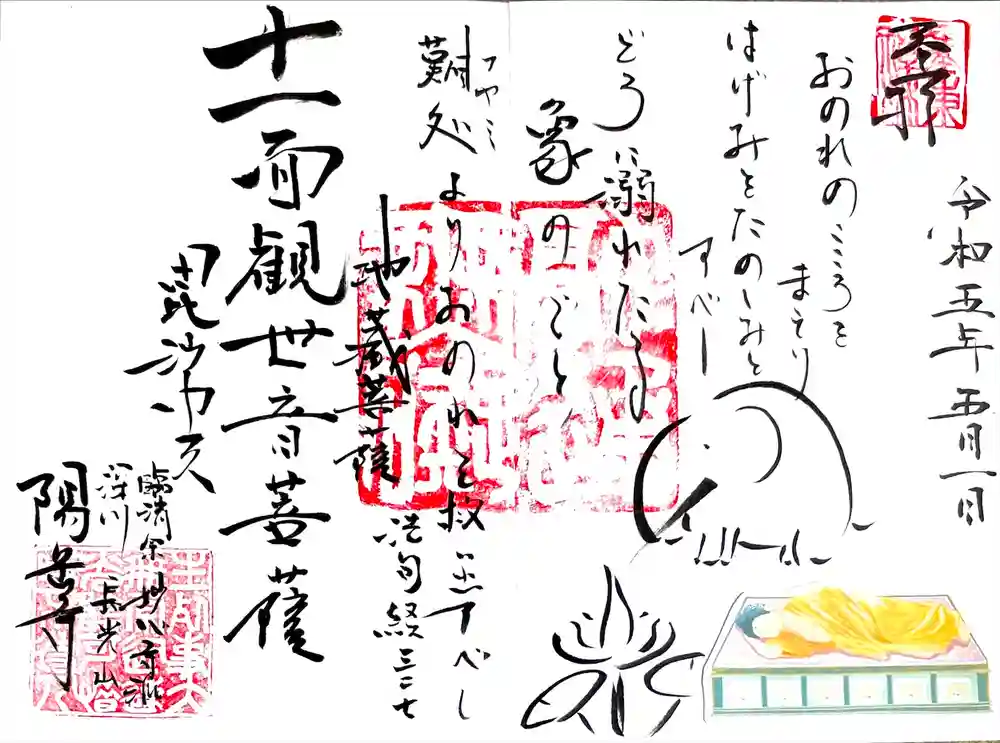 奉拝
令和五年 正月一日
おのれのこころを
まもり
はげみをたのしみと
すべし
どろに溺れたる
象のごとく
難処よりおのれを救ふべし
フヤミ
法句経三二七
地蔵菩薩
十一面観世音菩薩
毘沙門天
臨済宗妙心寺派
深川
長光山
陽岳寺